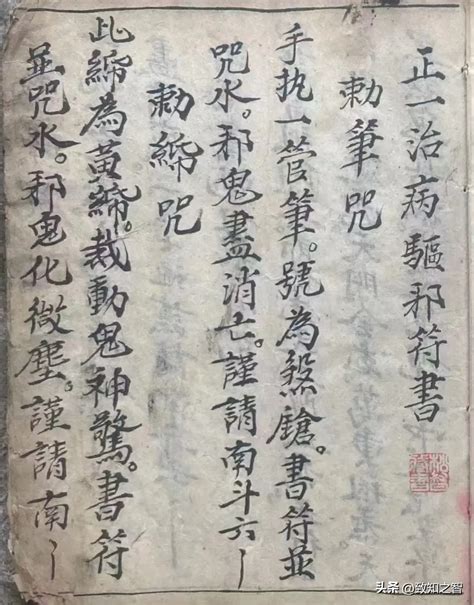 正一治病驅邪符書
勅筆咒
手执一管筆。號為煞鎗。書符並
咒水。邪鬼盡消亡。謹請南斗六〻
勅締咒
此締為黃締。裁動鬼神驚。書符
並咒水。邪鬼化微塵。謹請南〻
头条 @致知之智